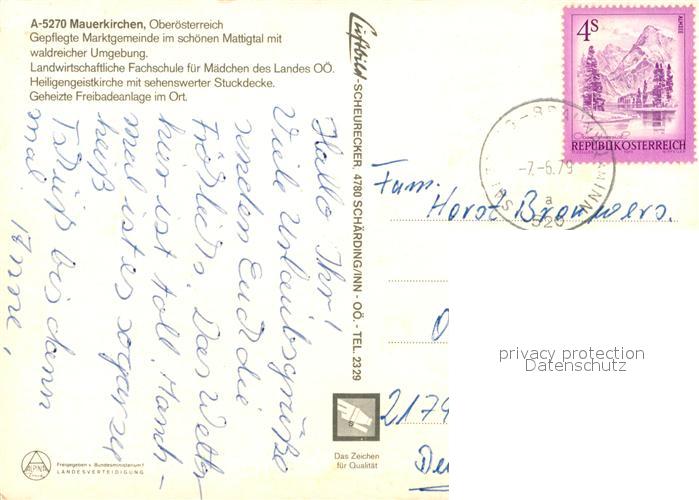 A-5270 Mauerkirchen, Oberösterreich
Gepflegte Marktgemeinde im schönen Mattigtal mit
waldreicher Umgebung.
Landwirtschaftliche Fachschule für Mädchen des Landes OÖ.
Heiligengeistkirche mit sehenswerter Stuckdecke.
Geheizte Freibadeanlage im Ort.
Hallo Ihr!
Viele Urlaubsgrüße
senden Euch die
Das Wetter
hier ist toll. Manch-
mal ist es sogar zu
heiß
Tschüß bis dann
mal.
Anne,
Luftbild - SCHEURECKER, 4780 SCHÄRDING/INN - OÖ. - TEL. 2329
4S
ALMSEE
REPUBLIK ÖSTERREICH
-7.-6.79
a
Fam.
Horst Brommers.
2179
privacy protection
Datenschutz
Das Zeichen
für Qualität
ALPINA
Freigegeben v. Bundesministerium f.
LANDESVERTEIDIGUNG